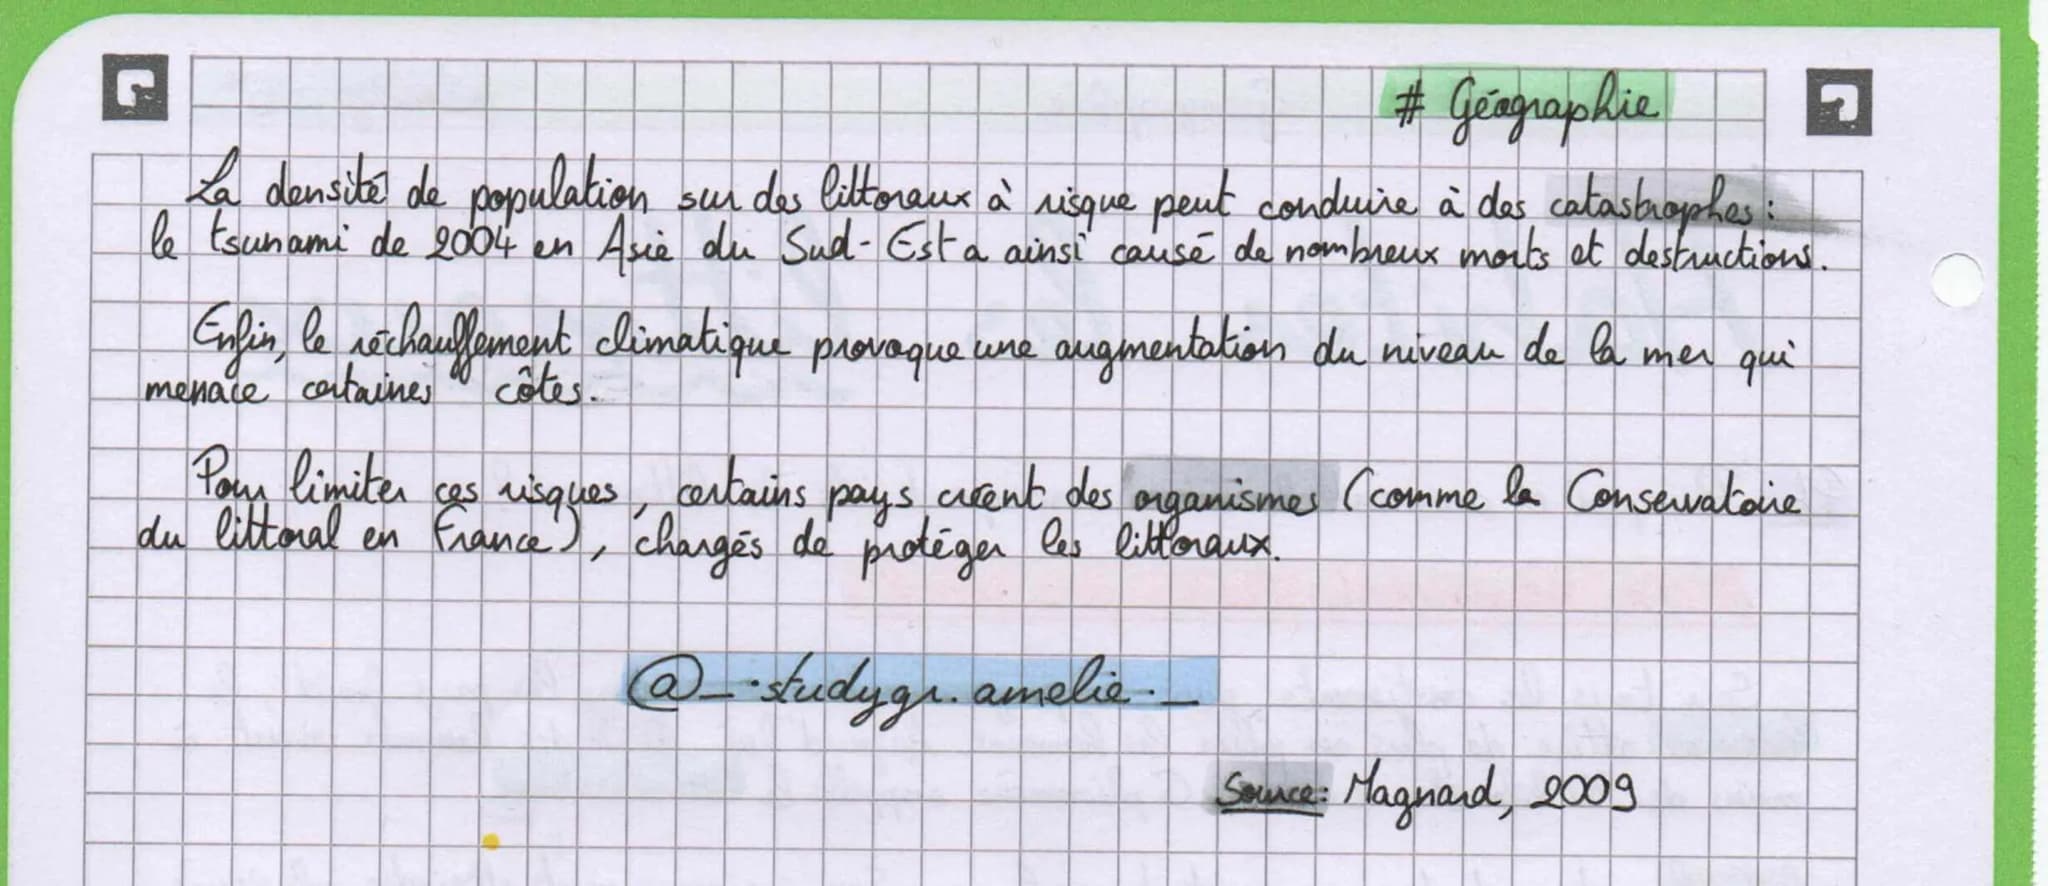 # Géographie
La densité de population sur des littoraux à risque peut conduire à des catastrophes :
le tsunami de 2004 en Asie du Sud-Est a ainsi causé de nombreux morts et destructions.
Enfin, le réchauffement climatique provoque une augmentation du niveau de la mer qui
menace certaines côtes.
Pour limiter ces risques, certains pays créent des organismes (comme le Conservatoire
du littoral en France), chargés de protéger les littoraux.
@_.studygr.amelie._
Source: Magnard, 2009